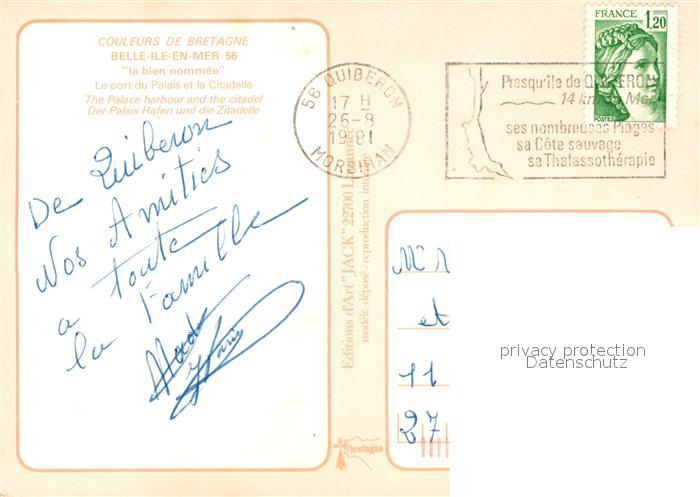 COULEURS DE BRETAGNE
BELLE-ILE-EN-MER 56
"la bien nommée"
Le port du Palais et la Citadelle
The Palace harbour and the citadel
Der Palais Hafen und die Zitadelle
De Quiberon
Nos Amitiés
a toute
la Famille
Editions d'Art "JACK" 22700
modèle déposé - reproduction
bretagne
56 QUIBERON
17 H
26-8
1981
MORBIHAN
Presqu'ile de QUIBERON
14 km
ses nombreuses Plages
sa Côte sauvage
sa Thalassothérapie
FRANCE
1,20
POSTES
et
11
27
privacy protection
Datenschutz